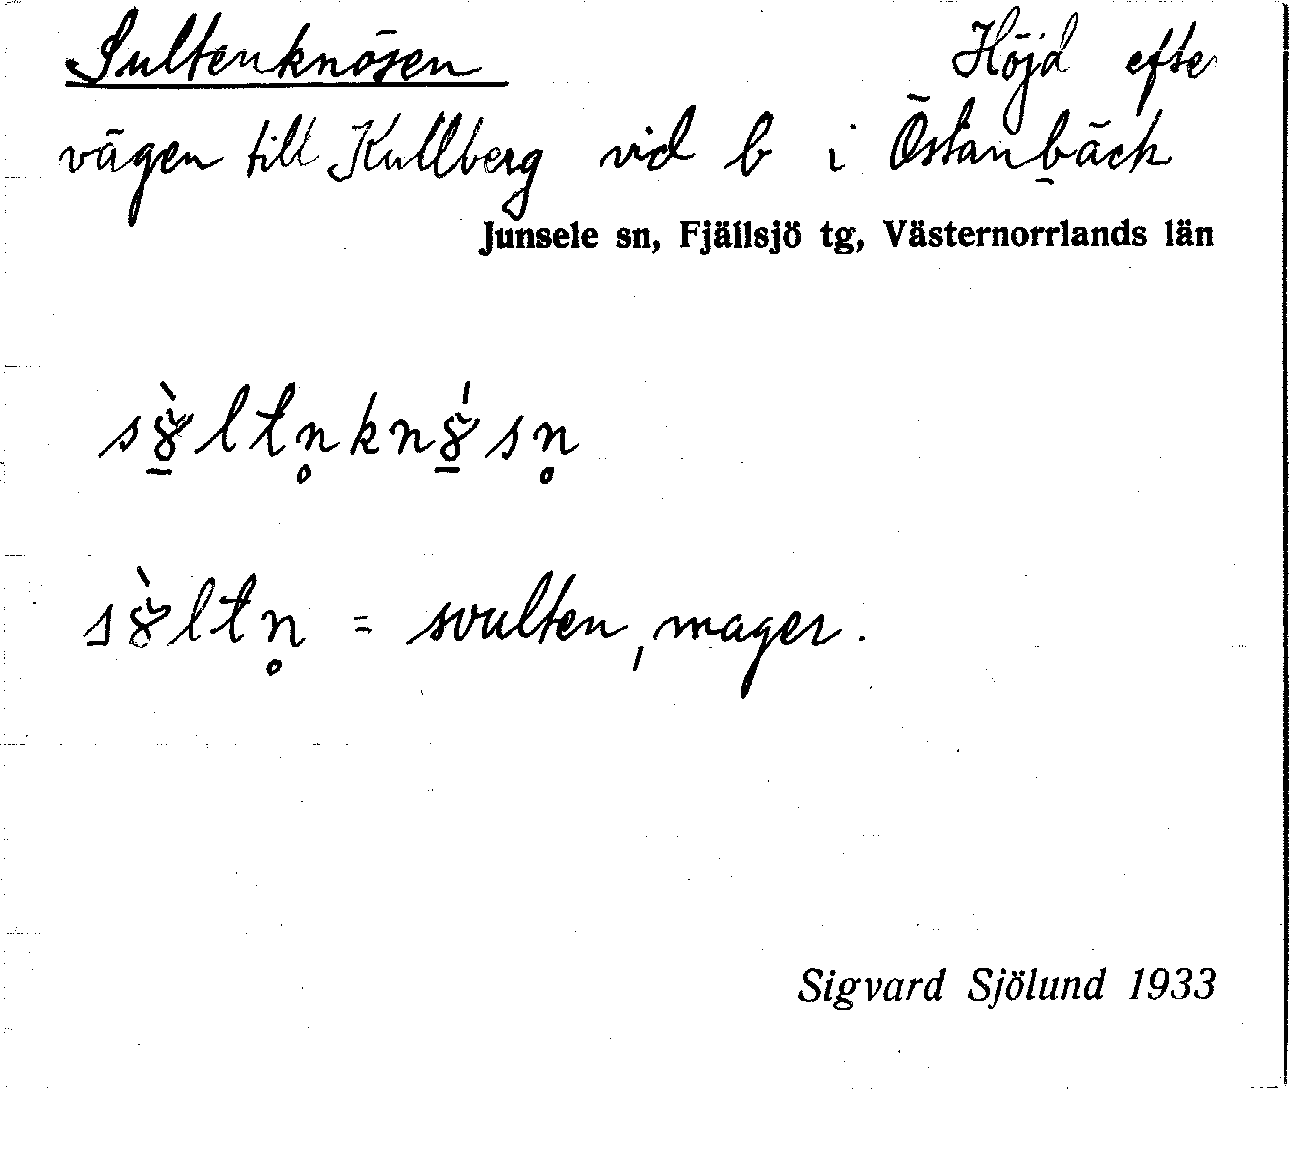 Sultenknösen Höjd efte
vägen till Kullberg vid b i Östanbäck
Junsele sn, Fjällsjö tg, Västernorrlands län
= svulten, mager.
Sigvard Sjölund 1933